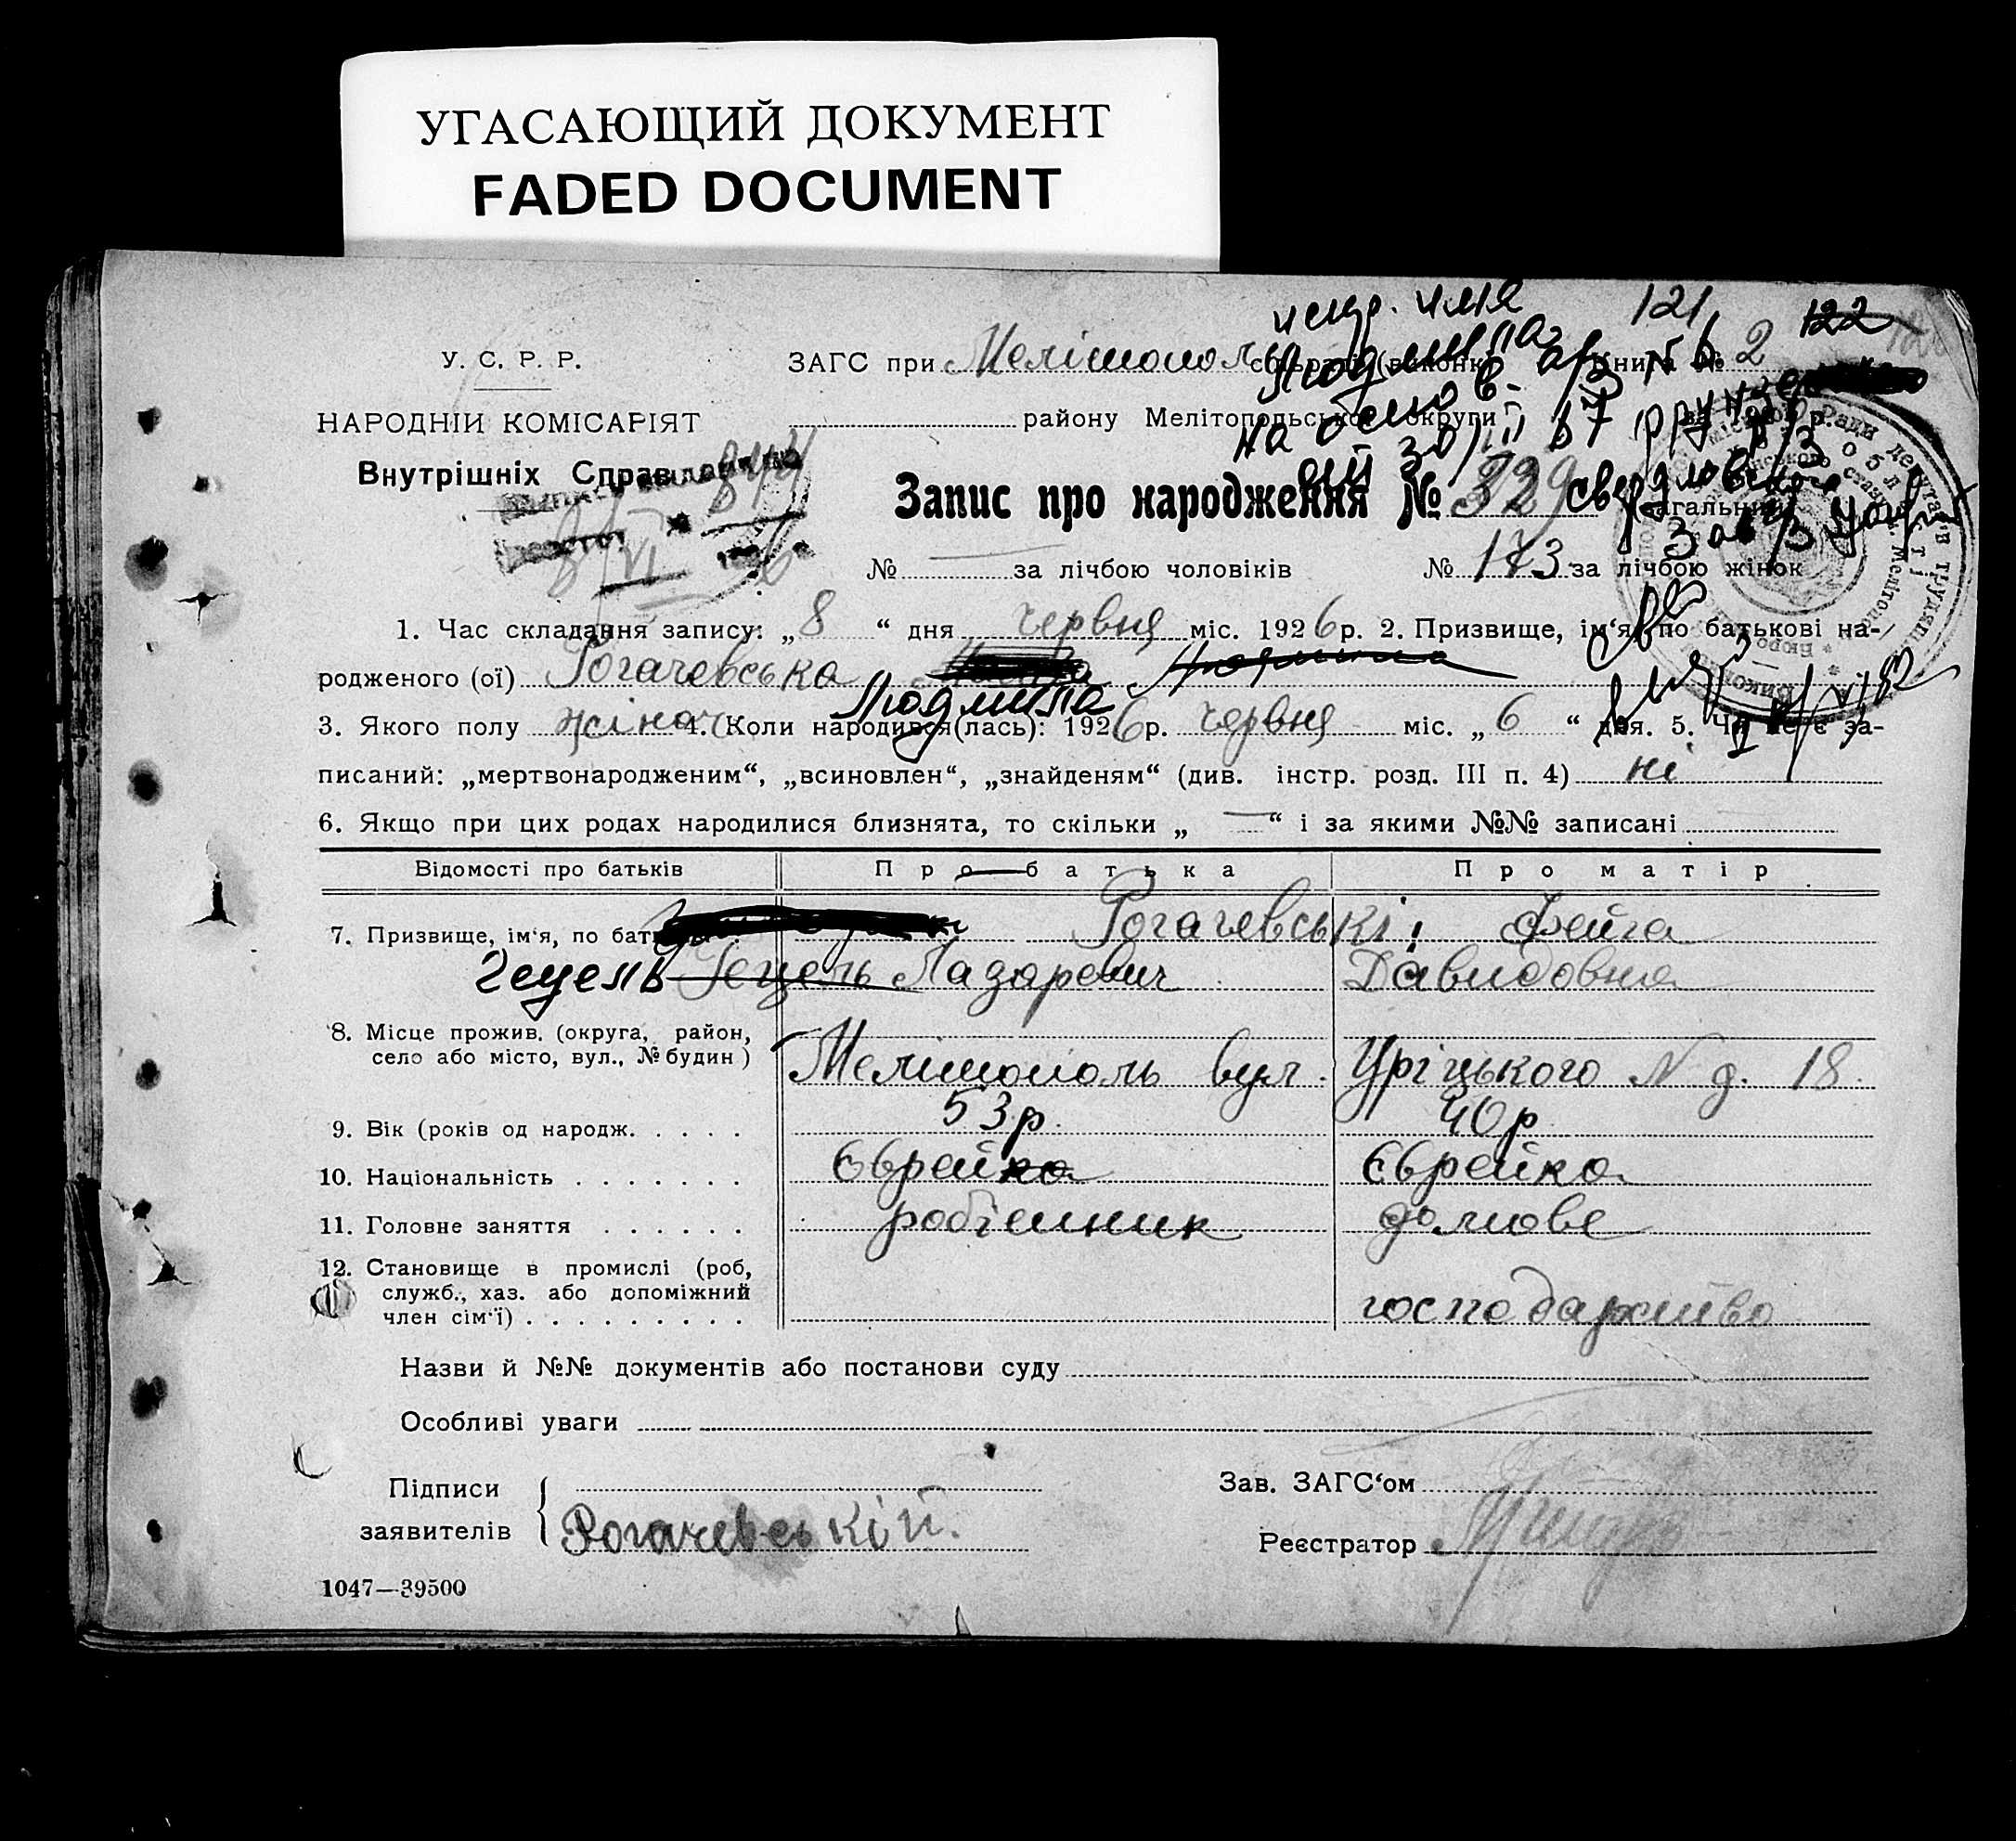 УГАСАЮЩИЙ ДОКУМЕНТ
FADED DOCUMENT
121 122
испр. имя
Людмила
У. С. Р. Р.
ЗАГС при Мелітополь Книга № 2
НАРОДНІЙ КОМІСАРІЯТ
району Мелітопольської округи
Внутрішніх Справ
Запис про народження № 329
№ — за лічбою чоловіків № 173 за лічбою жінок
1. Час складання запису: „8“ дня червня міс. 1926р. 2. Призвище, ім'я, по батькові на-
родженого (ої) Рогачевська Людмила
Людмила
3. Якого полу жіноч 4. Коли народився(лась): 1926р. червня міс. „6“ дня. 5. Чи не є за-
писаний: „мертвонародженим“, „всиновлен“, „знайденям“ (див. інстр. розд. III п. 4) ні
6. Якщо при цих родах народилися близнята, то скільки „—“ і за якими №№ записані
Відомості про батьків Про батька Про матір
7. Призвище, ім'я, по бат Рогачевські: Фейга
Гецель Гецель Лазаревич Давидовна
8. Місце прожив. (округа, район,
село або місто, вул., № будин)
Мелітополь вул. Уріцького N д. 18.
9. Вік (років од народж. . . . . 53р. 40р
10. Національність . . . . . . . Єврейка Єврейка
11. Головне заняття . . . . . . робітник домове
12. Становище в промислі (роб,
служб., хаз. або допоміжний
член сім'ї) . . . . . . . . . господарство
Назви й №№ документів або постанови суду
Особливі уваги
Підписи
заявителів
Рогачевській.
Зав. ЗАГС'ом
Реєстратор
1047—39500